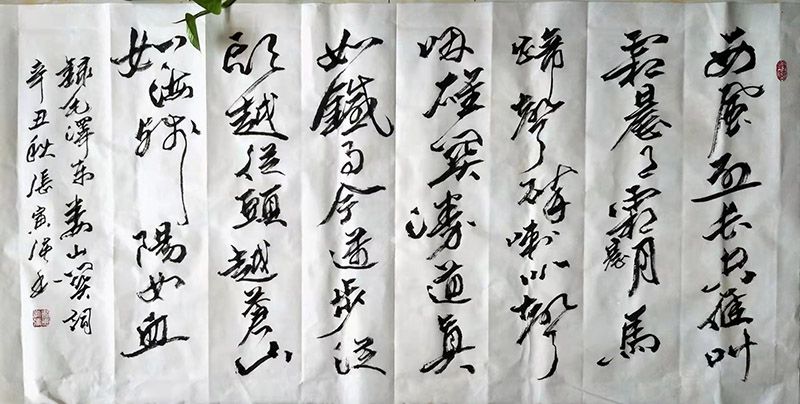 西風烈長空雁叫
霜晨月霜晨月馬
蹄聲碎喇叭聲
咽雄關漫道真
如鐵而今邁步從
頭越從頭越蒼山
如海殘陽如血
錄毛澤東婁山關詞
辛丑秋張寅